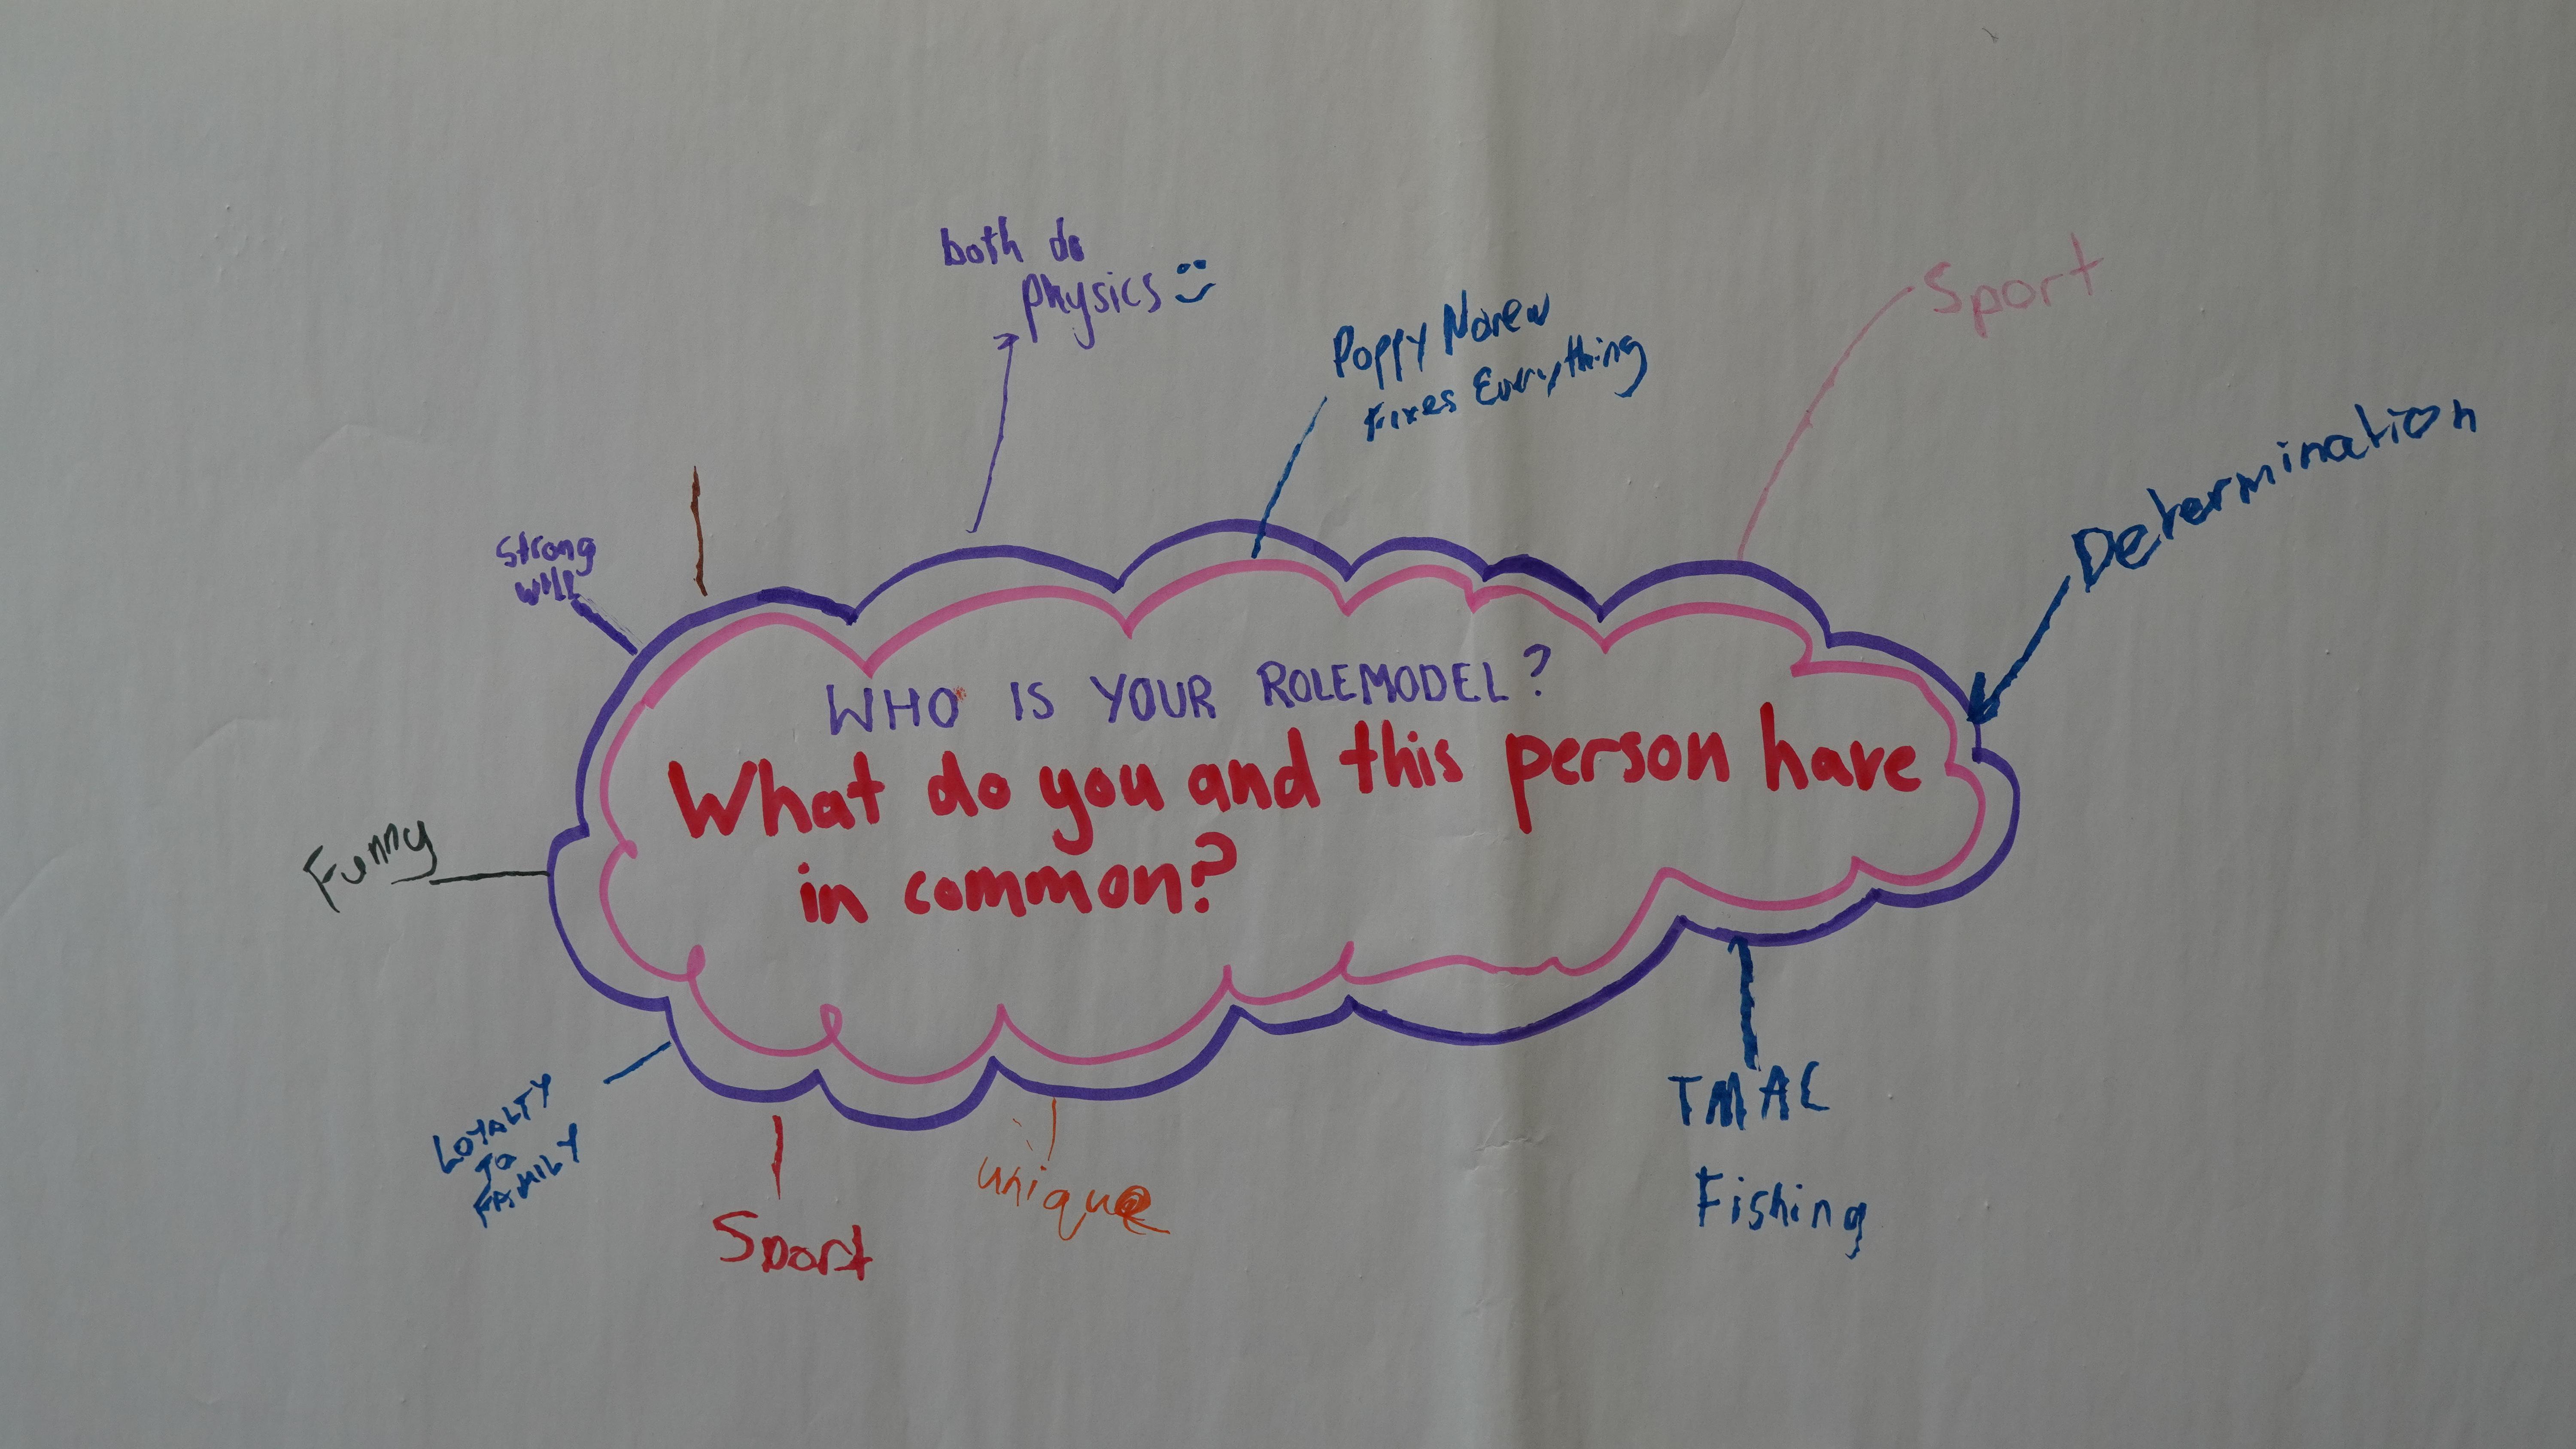 both do
physics
Poppy Noren
Fixes Everything
Sport
Determination
Strong
will
WHO IS YOUR ROLEMODEL?
What do you and this person have
in common?
Funny
LOYALTY
TO
FAMILY
Sport
unique
TMAC
Fishing